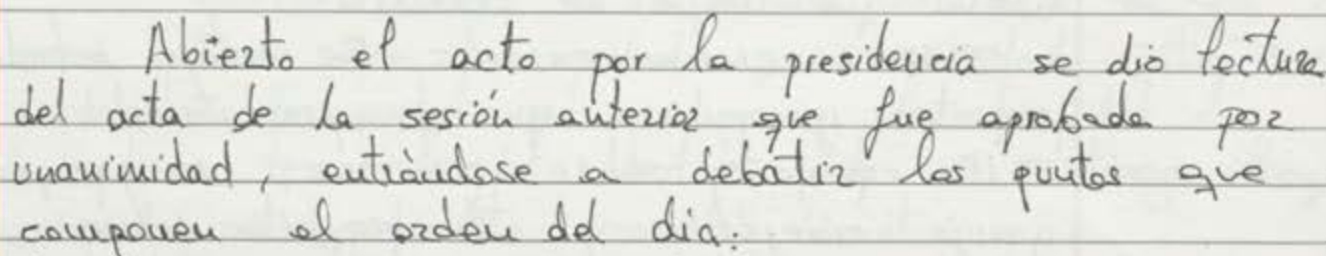 Abierto el acto por la presidencia se dio lectura
del acta de la sesión anterior que fue aprobada por
unanimidad, entrándose a debatir los puntos que
componen el orden del dia: